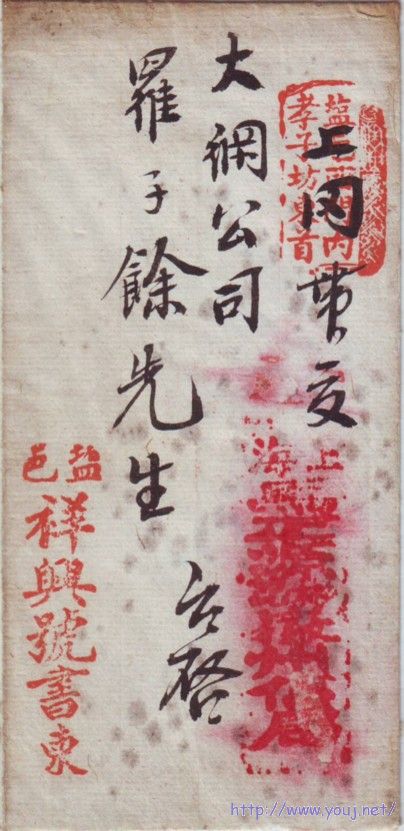 上冈带交
大網公司
羅子餘先生 台啓
盐邑
祥興號書柬
上海
孝子坊東首
http://www.youj.net/